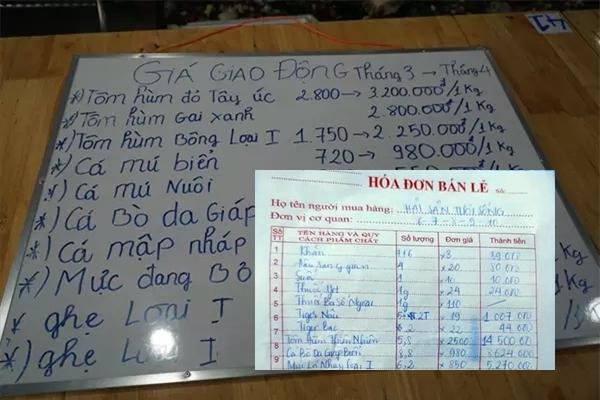 GIÁ GIAO ĐỘNG Tháng 3 → Tháng 4
*) Tôm hùm đỏ Tây úc 2.800 → 3.200.000đ/1Kg
*) Tôm hùm Gai xanh 2.800.000đ/1Kg
*) Tôm hùm Bông Loại I 1.750 → 2.250.000đ/1Kg
*) Cá mú biển 720 → 980.000đ/1Kg
*) Cá mú Nuôi
*) Cá Bò da Giáp
*) Cá mập nháp
*) Mực đang Bỏ
*) ghẹ Loại I
*) ghẹ Loại I
HÓA ĐƠN BÁN LẺ Số:
Họ tên người mua hàng: HẢI SẢN TƯƠI SỐNG
Đơn vị cơ quan: 6-7-8-9-10
Số TT TÊN HÀNG VÀ QUY CÁCH PHẨM CHẤT Số lượng Đơn giá Thành tiền
1 Khăn x3
2 4 x 20 80 000
3 Suối 1 x10 10 000
4 Thuốc 1g x 24 24 000
5 Thuốc Ba Số Ngoại 1g x 110
6 Tiger Nâu x 19 1 007 000
7 Tiger Bạc 2 x 22 44 000
8 Tôm Hùm Thiên Nhiên 5,8 x 2500 14 500 000
9 Cá Bò Da Giáp Biển 8,8 x 980 8 624 000
Mực Lá Nháy Loại I 6,2 x 850 5 270 000